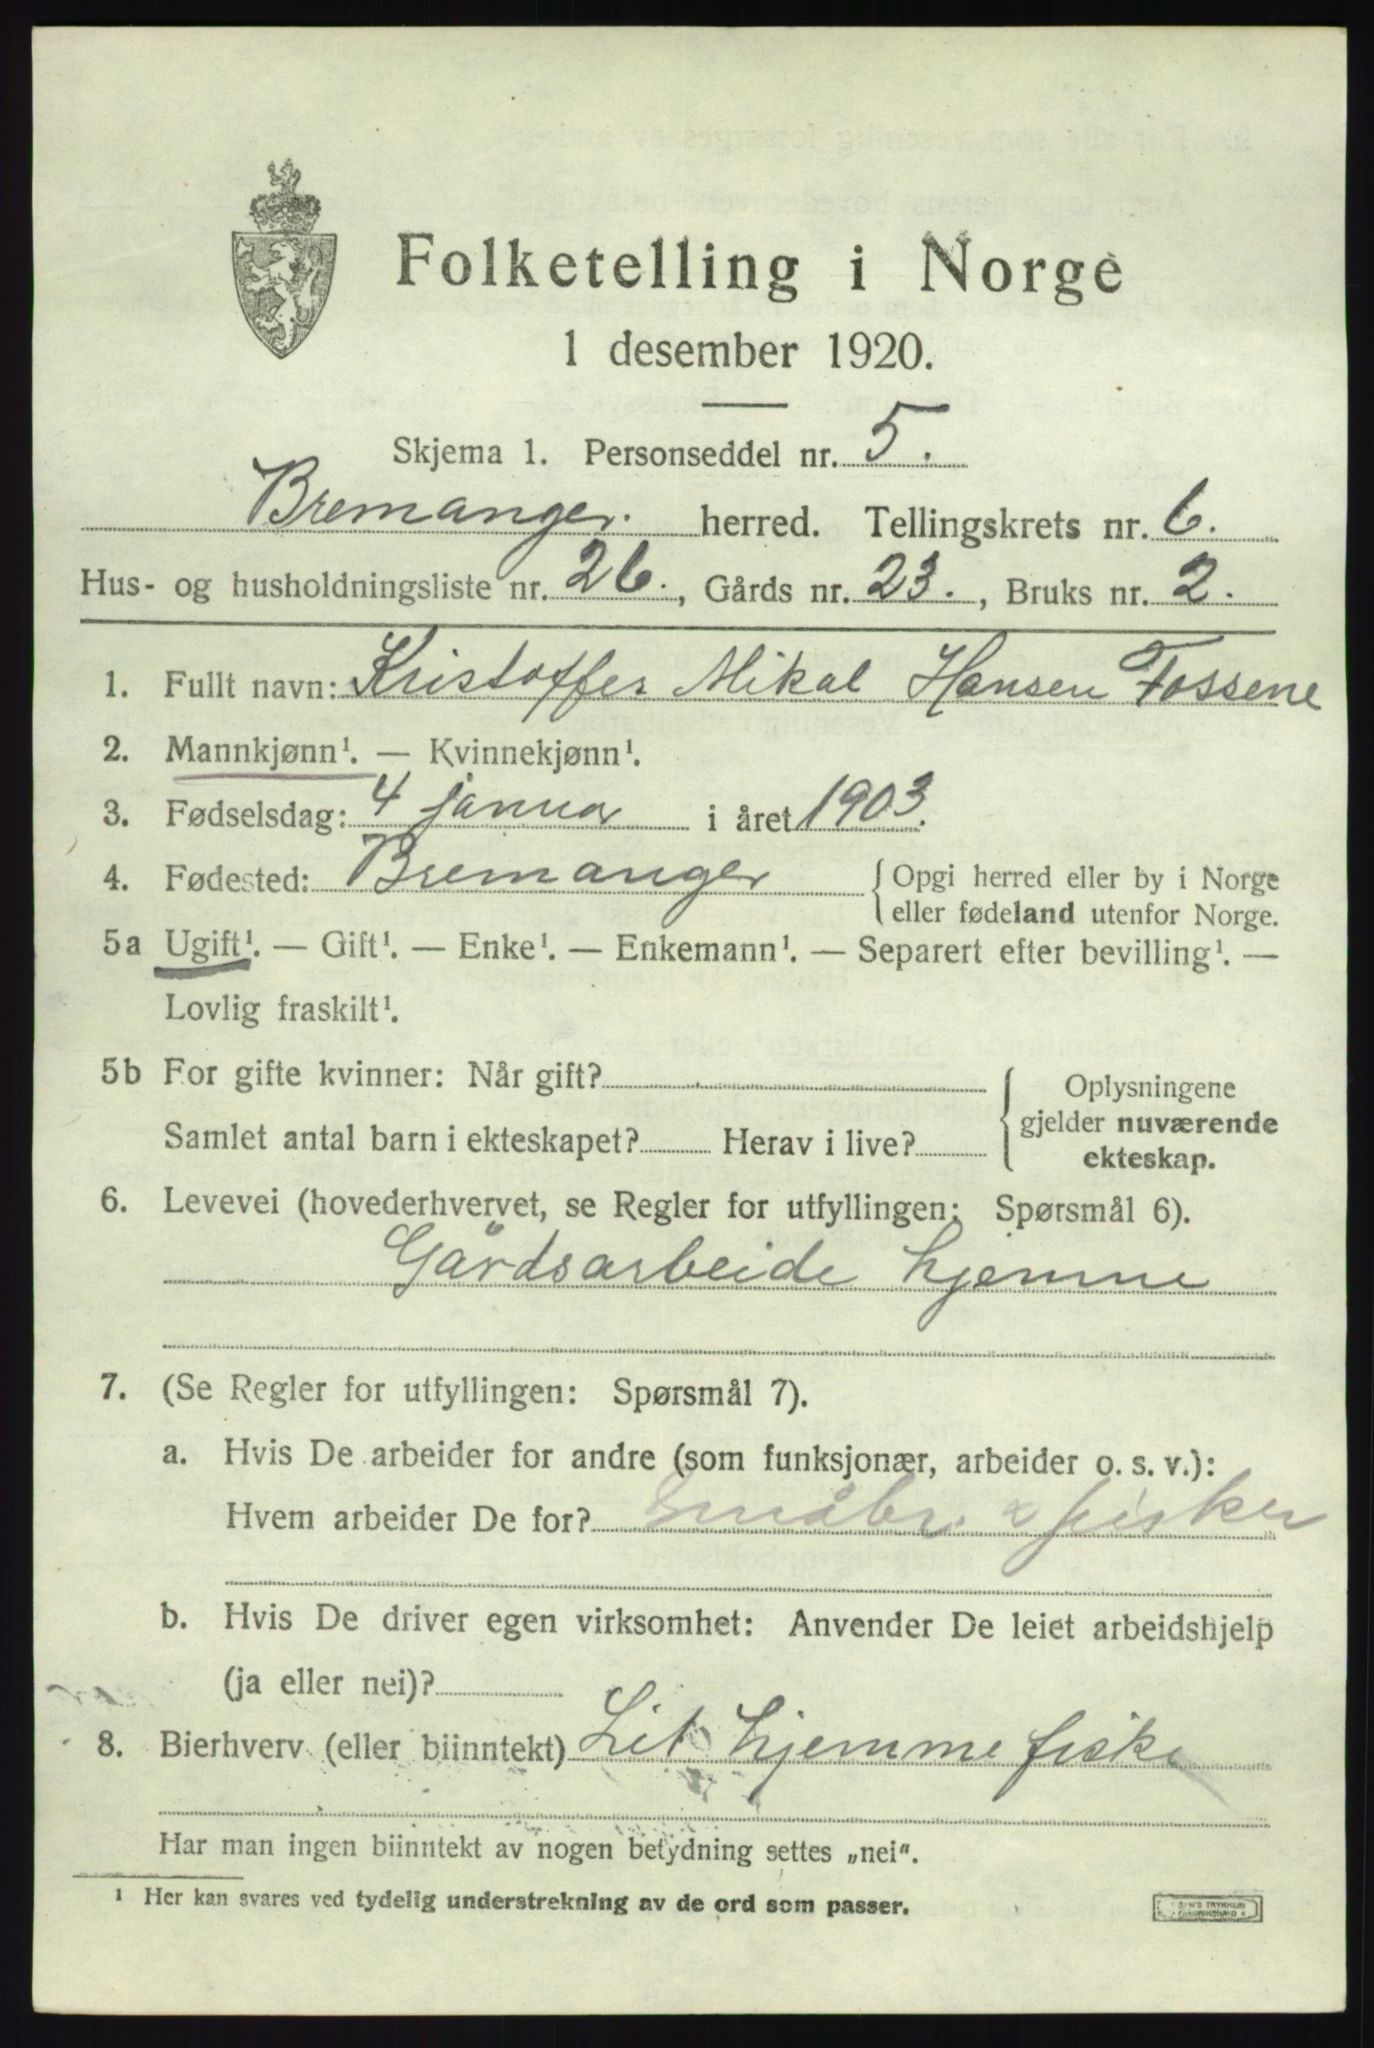 Folketelling i Norge
1 desember 1920.
Skjema 1. Personseddel nr. 5.
Bremanger. herred. Tellingskrets nr. 6.
Hus- og husholdningsliste nr. 26., Gårds nr. 23., Bruks nr. 2.
1. Fullt navn: Kristoffer Mikal Hansen Fossene
2. Mannkjønn¹. — Kvinnekjønn¹.
3. Fødselsdag: 4 januar i året 1903.
4. Fødested: Bremanger { Opgi herred eller by i Norge
eller fødeland utenfor Norge.
5a Ugift¹. — Gift¹. — Enke¹. — Enkemann¹. — Separert efter bevilling¹. —
Lovlig fraskilt¹.
5b For gifte kvinner: Når gift? { Oplysningene
gjelder nuværende
Samlet antal barn i ekteskapet? Herav i live?
ekteskap.
6. Levevei (hovederhvervet, se Regler for utfyllingen: Spørsmål 6).
Gårdsarbeide hjemme
7. (Se Regler for utfyllingen: Spørsmål 7).
a. Hvis De arbeider for andre (som funksjonær, arbeider o. s. v.):
Hvem arbeider De for? Småbr. x fisker
b. Hvis De driver egen virksomhet: Anvender De leiet arbeidshjelp
(ja eller nei)?
8. Bierhverv (eller biinntekt) Lit hjemmefiske
Har man ingen biinntekt av nogen betydning settes „nei".
¹ Her kan svares ved tydelig understrekning av de ord som passer.